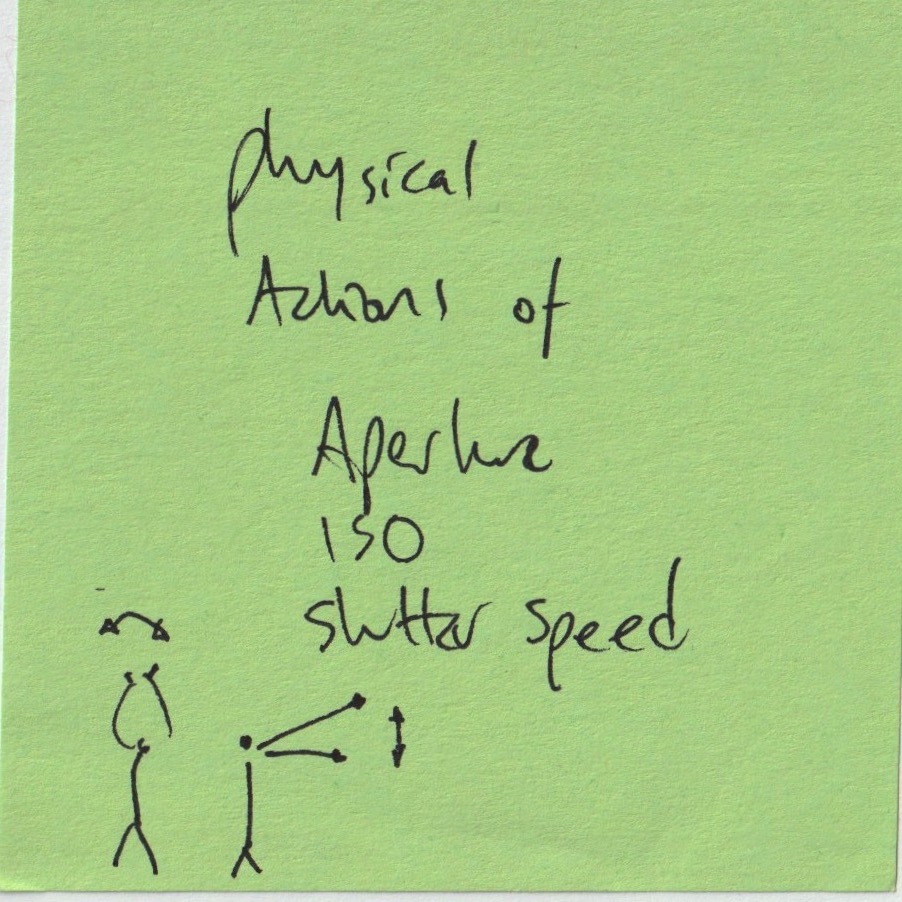 physical
Actions of
Aperture
ISO
shutter speed